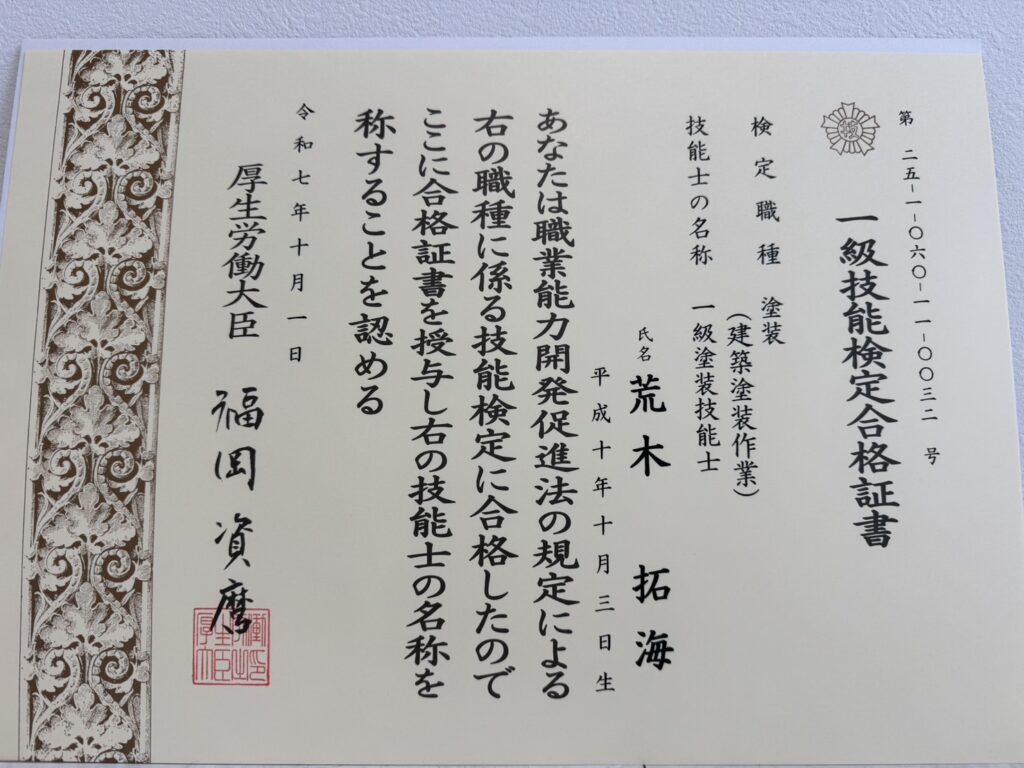 第 二五-一-〇六〇-一一-〇〇三二 号
一級技能検定合格証書
検定職種 塗装
(建築塗装作業)
技能士の名称 一級塗装技能士
氏名 荒木 拓海
平成十年十月三日生
あなたは職業能力開発促進法の規定による
右の職種に係る技能検定に合格したので
ここに合格証書を授与し右の技能士の名称を
称することを認める
令和七年十月一日
厚生労働大臣 福岡 資麿